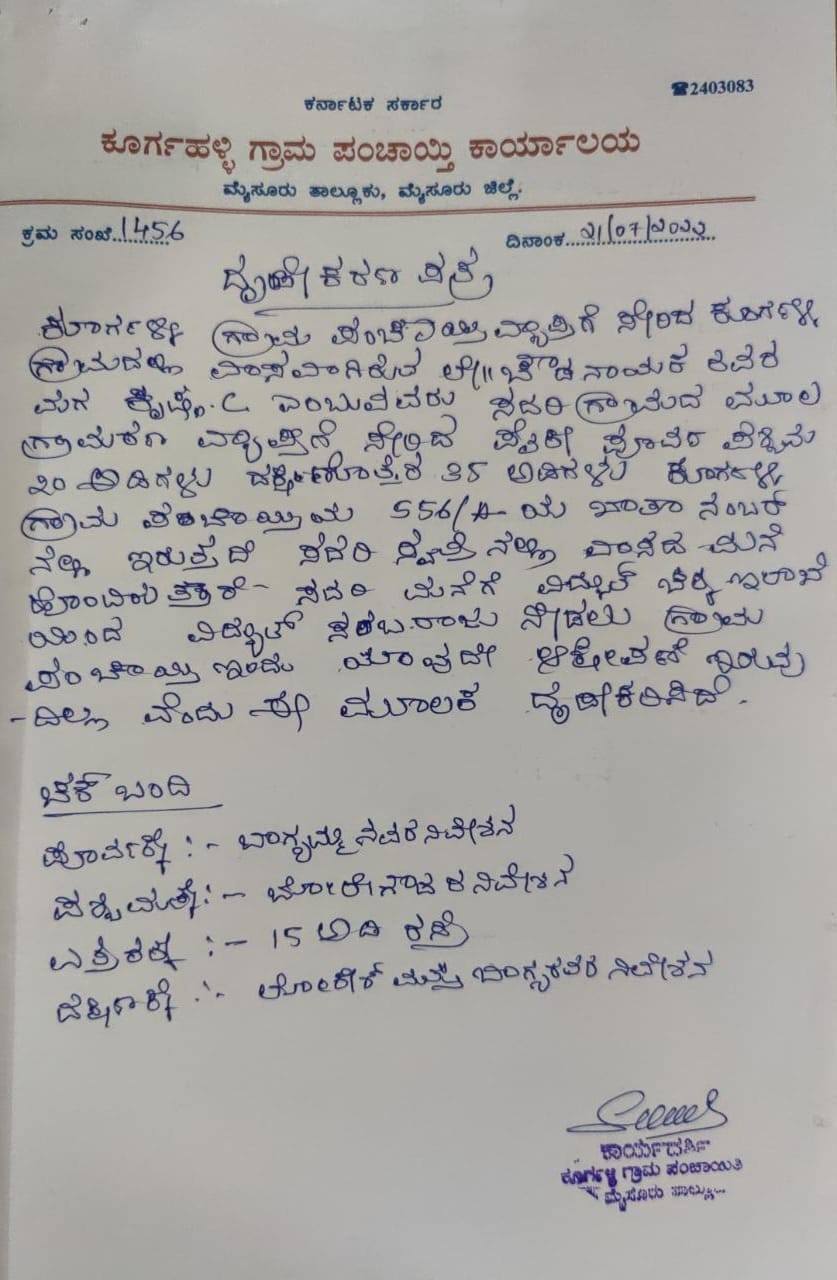 ☎2403083
ಕರ್ನಾಟಕ ಸರ್ಕಾರ
ಕೂರ್ಗಹಳ್ಳಿ ಗ್ರಾಮ ಪಂಚಾಯ್ತಿ ಕಾರ್ಯಾಲಯ
ಮೈಸೂರು ತಾಲ್ಲೂಕು, ಮೈಸೂರು ಜಿಲ್ಲೆ.
ಕ್ರಮ ಸಂಖೆ..1456
ದಿನಾಂಕ...21/07/2022
ದೃಢೀಕರಣ ಪತ್ರ
ಕೂರ್ಗಳ್ಳಿ ಗ್ರಾಮ ಪಂಚಾಯ್ತಿ ವ್ಯಾಪ್ತಿಗೆ ಸೇರಿದ ಕೂರ್ಗಳ್ಳಿ
ಗ್ರಾಮದಲ್ಲಿ ವಾಸವಾಗಿರುವ ಲೇ॥ ಚೌಡನಾಯಕ ರವರ
ಮಗ ಕೃಷ್ಣ. C ಎಂಬುವವರು ಸದರಿ ಗ್ರಾಮದ ಮೂಲ
ಗ್ರಾಮಠಾಣ ವ್ಯಾಪ್ತಿಗೆ ಸೇರಿದ ಪೈಕಿ ಪೂರ್ವ ಪಶ್ಚಿಮ
೨೦ ಅಡಿಗಳು ದಕ್ಷಿಣೋತ್ತರ 35 ಅಡಿಗಳು ಕೂರ್ಗಳ್ಳಿ
ಗ್ರಾಮ ಪಂಚಾಯ್ತಿಯ 556/A ಯ ಖಾತಾ ನಂಬರ್
ನಲ್ಲಿ ಇರುತ್ತದೆ ಸದರಿ ಸ್ವತ್ತಿನಲ್ಲಿ ವಾಸದ ಮನೆ
ಹೊಂದಿರುತ್ತಾರೆ- ಸದರಿ ಮನೆಗೆ ವಿದ್ಯುತ್ ಚಕ್ತಿ ಇಲಾಖೆ
ಯಿಂದ ವಿದ್ಯುತ್ ಸರಬರಾಜು ನೀಡಲು ಗ್ರಾಮ
ಪಂಚಾಯ್ತಿ ಇಂದ ಯಾವುದೇ ಆಕ್ಷೇಪಣೆ ಇರುವು
-ದಿಲ್ಲ ವೆಂದು ಈ ಮೂಲಕ ದೃಢೀಕರಿಸಿದೆ.
ಚಕ್ ಬಂದಿ
ಪೂರ್ವಕ್ಕೆ :- ಬಾಗ್ಯಮ್ಮನವರ ನಿವೇಶನ
ಪಶ್ಚಿಮಕ್ಕೆ:- ಬೋರೇಗೌಡರ ನಿವೇಶನ
ಉತ್ತರಕ್ಕೆ :- 15 ಅಡಿ ರಸ್ತೆ
ದಕ್ಷಿಣಕ್ಕೆ :- ಲೋಕೇಶ್ ಮತ್ತು ಬಾಗ್ಯರವರ ನಿವೇಶನ
ಕಾರ್ಯದರ್ಶಿ
ಕೂರ್ಗಳ್ಳಿ ಗ್ರಾಮ ಪಂಚಾಯಿತಿ
ಮೈಸೂರು ತಾಲ್ಲೂಕು